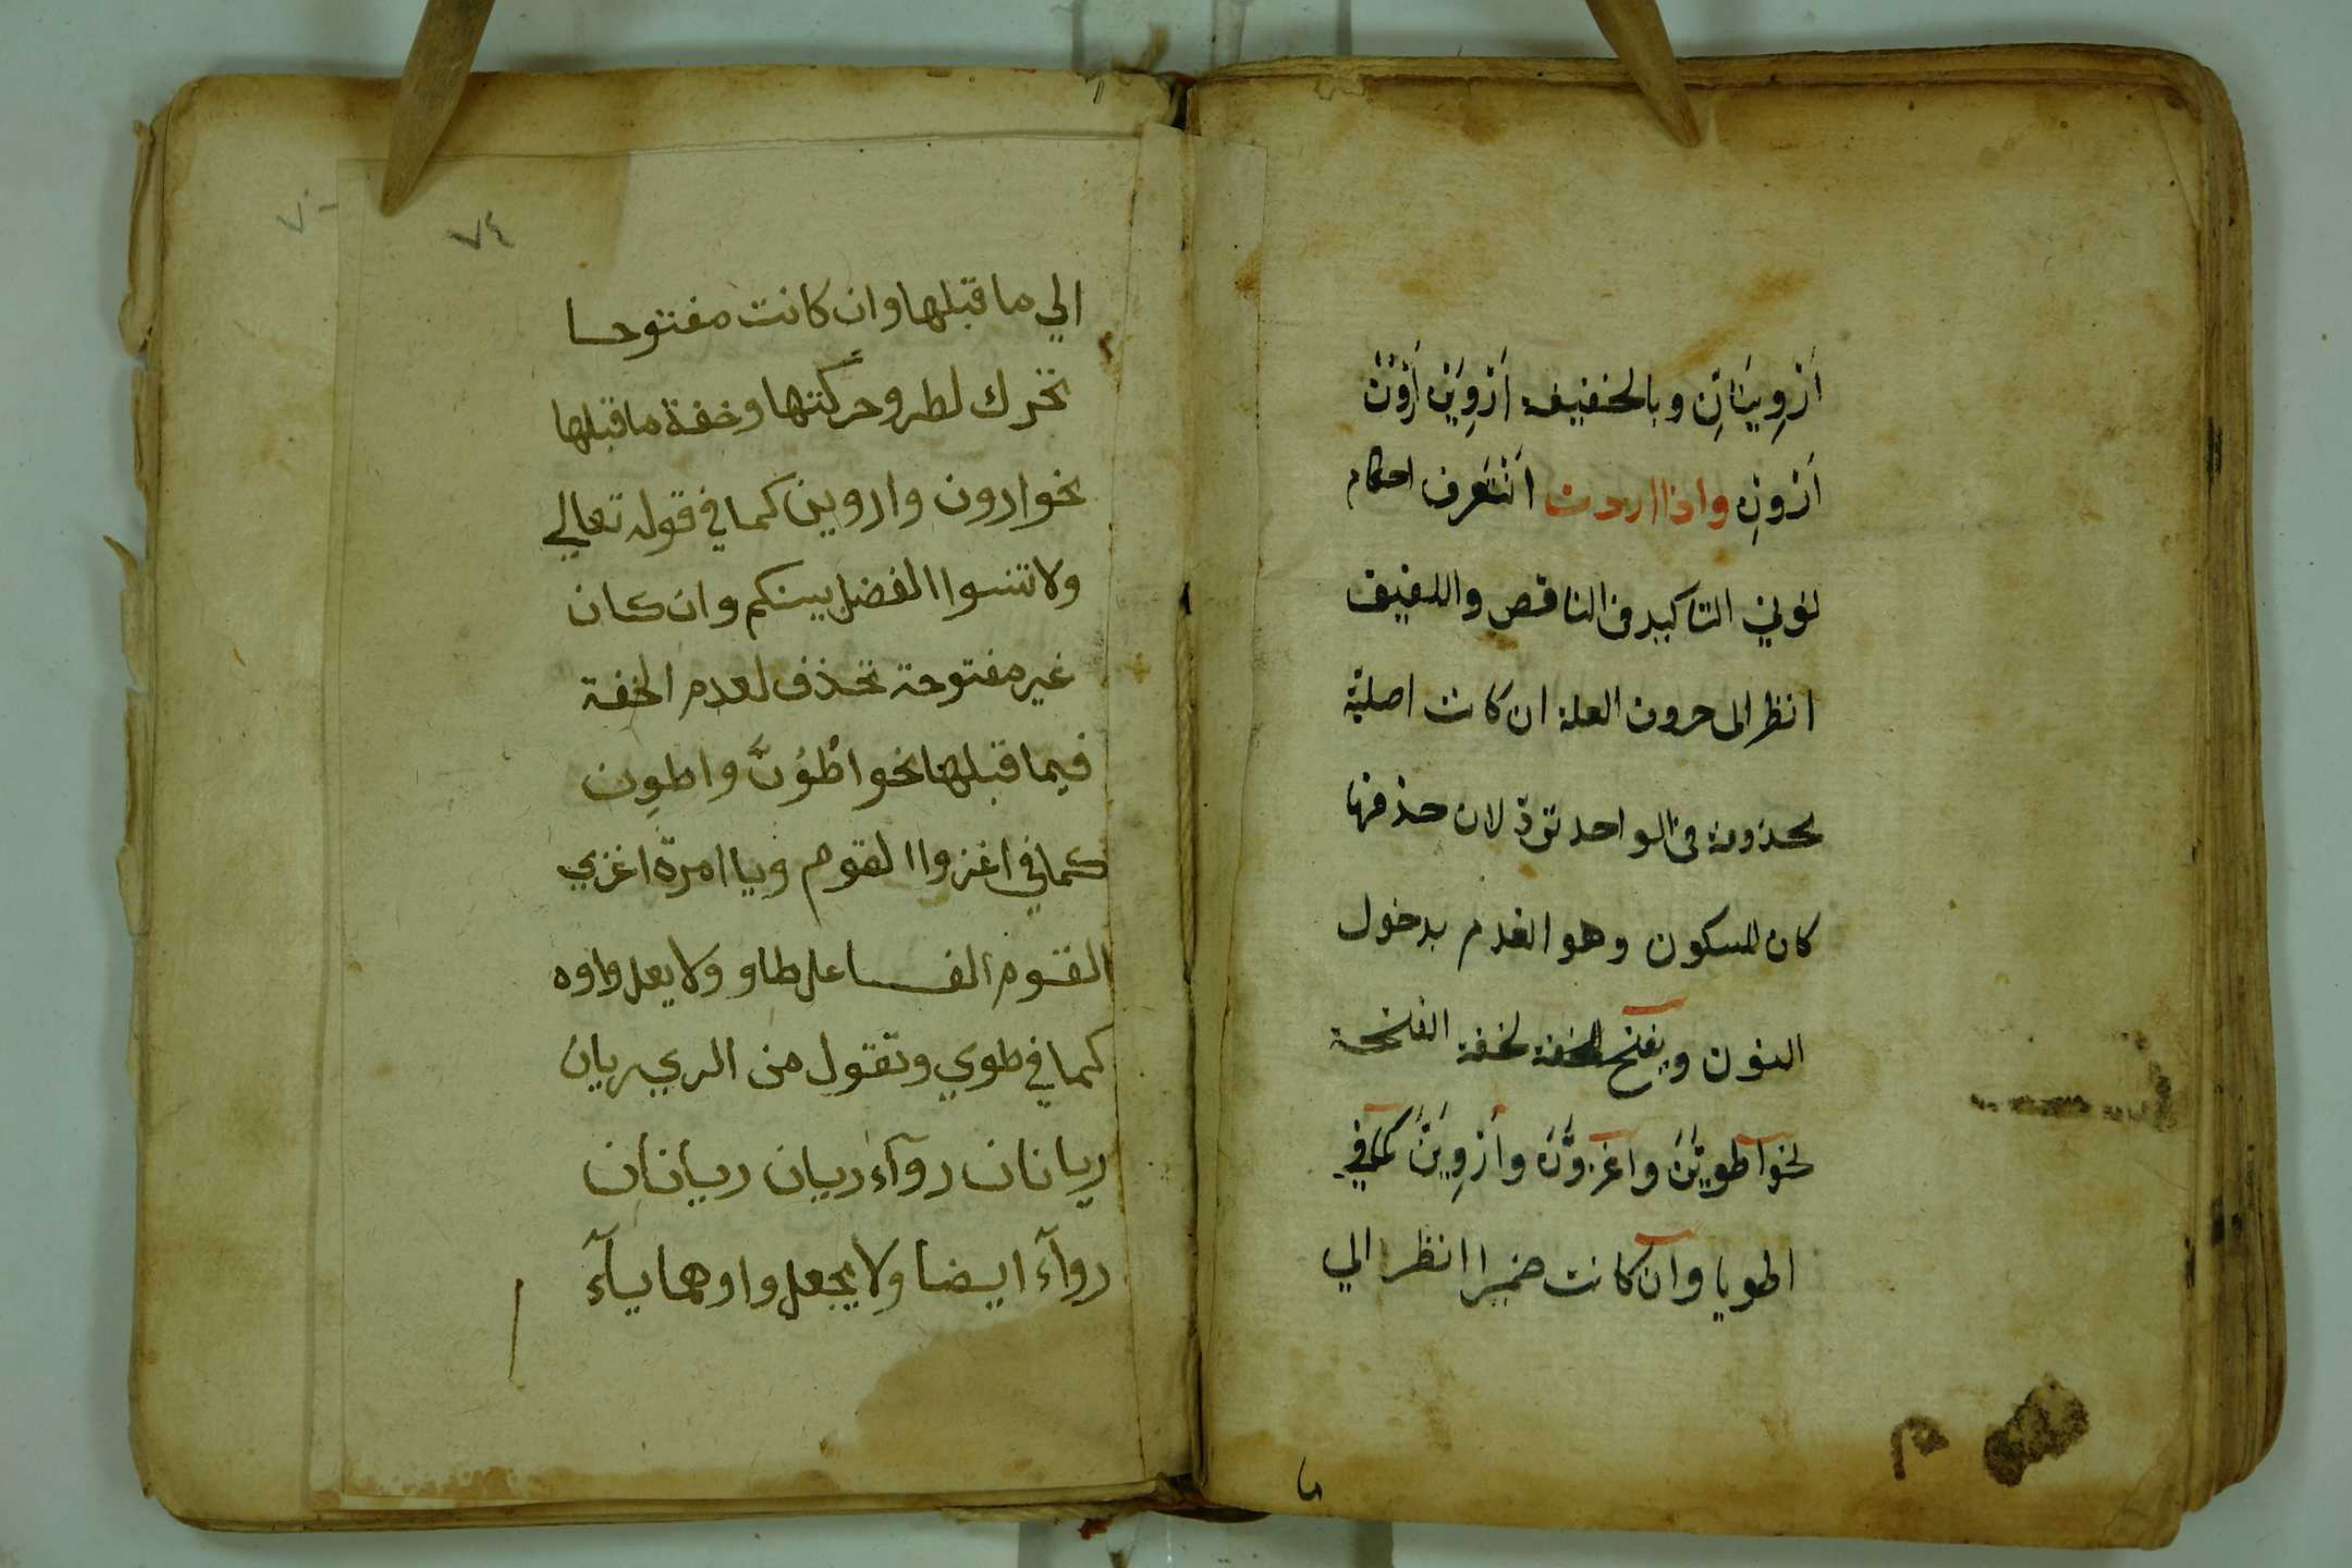 اَرْوِيَنَانِّ وبالخفيف اَرْوِيَنْ اَرْوُنْ
اَرْوِنْ واذا اردت اَنْ تَعرف احكام
نونى التاكيد فى الناقص واللفيف
انظر الى حروف العلة ان كانت اصلية
محذوفة فى الواحد تردّ لان حذفها
كان للسكون وهو انعدم بدخول
النون ويفتح لخفة الفتحة
نحو اطوِيَنَّ واغزوَنَّ واَرْوِيَنَّ كما في
اطويا وان كانت ضميرا انظر الي
٧٤
الي ما قبلها وان كانت مفتوحا
تحرك لطرو حركتها وخفة ما قبلها
نحو اروون واروين كما في قوله تعالي
ولا تنسوا الفضل بينكم وان كان
غير مفتوحة تحذف لعدم الخفة
فيما قبلها نحو اطْوُنَّ واطوِن
كما في اغزوا القوم ويا امرة اغزي
القوم الفاعل طاو ولا يعل واوه
كما في طوي وتقول من الري ريان
ريانان روآء ريان ريانان
روآء ايضا ولا يجعل واوهما يآء